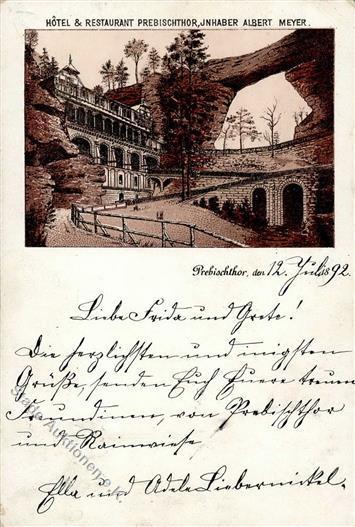 HÔTEL & RESTAURANT PREBISCHTHOR, JNHABER ALBERT MEYER.
Prebischthor, den 12. Juli 1892.
Liebe Frida und Grete!
Die herzlichsten und innigsten
Grüße, senden Euch Euere treuen
Freundinnen, von Prebischthor
und Rainwiese,
Ella und Adele Liebernickel.